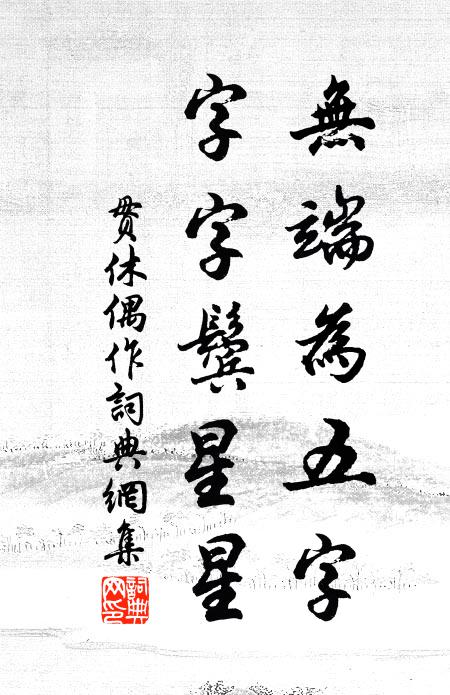 無端為五字
字字鬢星星
貫休偶作詞典網集
詞典网印